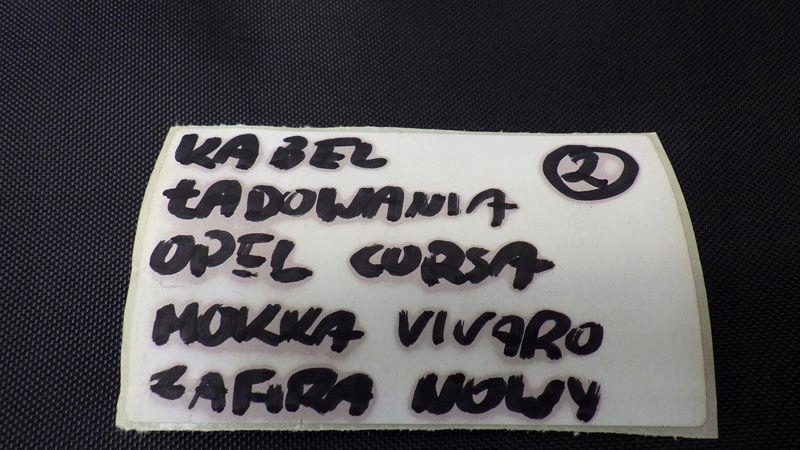 KABEL 2
ŁADOWANIA
OPEL CORSA
MOKKA VIVARO
ZAFIRA NOWY